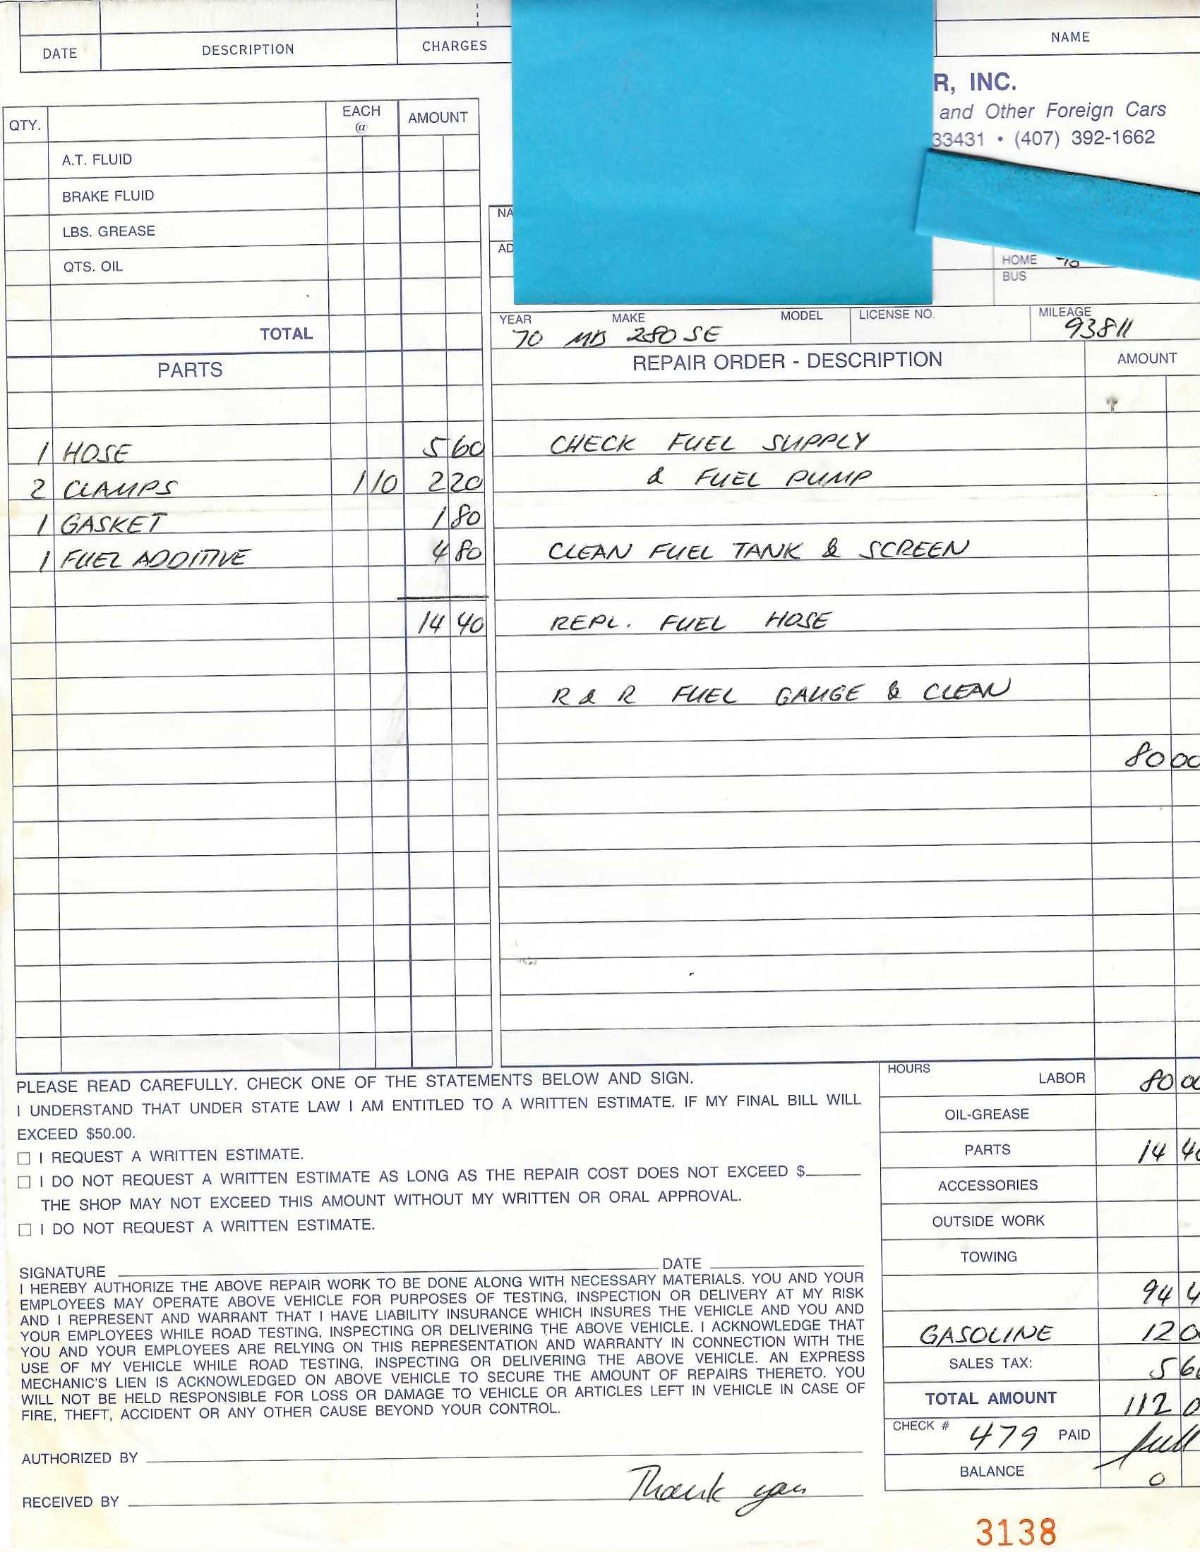 DATE DESCRIPTION CHARGES NAME
R, INC.
and Other Foreign Cars
33431 • (407) 392-1662
QTY. EACH @ AMOUNT
A.T. FLUID
BRAKE FLUID
LBS. GREASE
QTS. OIL
TOTAL
NA
AD
HOME
BUS
YEAR MAKE MODEL LICENSE NO. MILEAGE
70 MB 280SE 93811
PARTS
REPAIR ORDER - DESCRIPTION AMOUNT
1 HOSE 5 60
2 CLAMPS 1 10 2 20
1 GASKET 1 80
1 FUEL ADDITIVE 4 80
14 40
CHECK FUEL SUPPLY
& FUEL PUMP
CLEAN FUEL TANK & SCREEN
REPL. FUEL HOSE
R & R FUEL GAUGE & CLEAN
80 00
PLEASE READ CAREFULLY. CHECK ONE OF THE STATEMENTS BELOW AND SIGN.
I UNDERSTAND THAT UNDER STATE LAW I AM ENTITLED TO A WRITTEN ESTIMATE. IF MY FINAL BILL WILL
EXCEED $50.00.
☐ I REQUEST A WRITTEN ESTIMATE.
☐ I DO NOT REQUEST A WRITTEN ESTIMATE AS LONG AS THE REPAIR COST DOES NOT EXCEED $
THE SHOP MAY NOT EXCEED THIS AMOUNT WITHOUT MY WRITTEN OR ORAL APPROVAL.
☐ I DO NOT REQUEST A WRITTEN ESTIMATE.
SIGNATURE DATE
I HEREBY AUTHORIZE THE ABOVE REPAIR WORK TO BE DONE ALONG WITH NECESSARY MATERIALS. YOU AND YOUR
EMPLOYEES MAY OPERATE ABOVE VEHICLE FOR PURPOSES OF TESTING, INSPECTION OR DELIVERY AT MY RISK
AND I REPRESENT AND WARRANT THAT I HAVE LIABILITY INSURANCE WHICH INSURES THE VEHICLE AND YOU AND
YOUR EMPLOYEES WHILE ROAD TESTING, INSPECTING OR DELIVERING THE ABOVE VEHICLE. I ACKNOWLEDGE THAT
YOU AND YOUR EMPLOYEES ARE RELYING ON THIS REPRESENTATION AND WARRANTY IN CONNECTION WITH THE
USE OF MY VEHICLE WHILE ROAD TESTING, INSPECTING OR DELIVERING THE ABOVE VEHICLE. AN EXPRESS
MECHANIC'S LIEN IS ACKNOWLEDGED ON ABOVE VEHICLE TO SECURE THE AMOUNT OF REPAIRS THERETO. YOU
WILL NOT BE HELD RESPONSIBLE FOR LOSS OR DAMAGE TO VEHICLE OR ARTICLES LEFT IN VEHICLE IN CASE OF
FIRE, THEFT, ACCIDENT OR ANY OTHER CAUSE BEYOND YOUR CONTROL.
AUTHORIZED BY
RECEIVED BY Thank you
HOURS LABOR 80 00
OIL-GREASE
PARTS 14 40
ACCESSORIES
OUTSIDE WORK
TOWING
94 4
GASOLINE 12 0
SALES TAX: 5 6
TOTAL AMOUNT 112 0
CHECK # 479 PAID full
BALANCE 0
3138